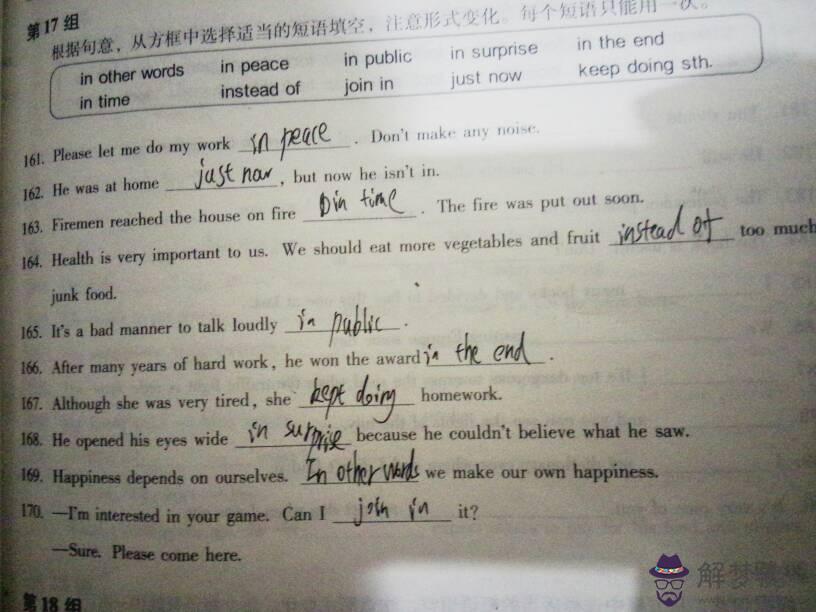 第17组
根据句意，从方框中选择适当的短语填空，注意形式变化。每个短语只能用一次。
in other words in peace in public in surprise in the end
in time instead of join in just now keep doing sth.
161. Please let me do my work in peace . Don't make any noise.
162. He was at home just now , but now he isn't in.
163. Firemen reached the house on fire in time . The fire was put out soon.
164. Health is very important to us. We should eat more vegetables and fruit instead of too much
junk food.
165. It's a bad manner to talk loudly in public .
166. After many years of hard work, he won the award in the end .
167. Although she was very tired, she kept doing homework.
168. He opened his eyes wide in surprise because he couldn't believe what he saw.
169. Happiness depends on ourselves. In other words we make our own happiness.
170. —I'm interested in your game. Can I join in it?
—Sure. Please come here.
第18组
解梦